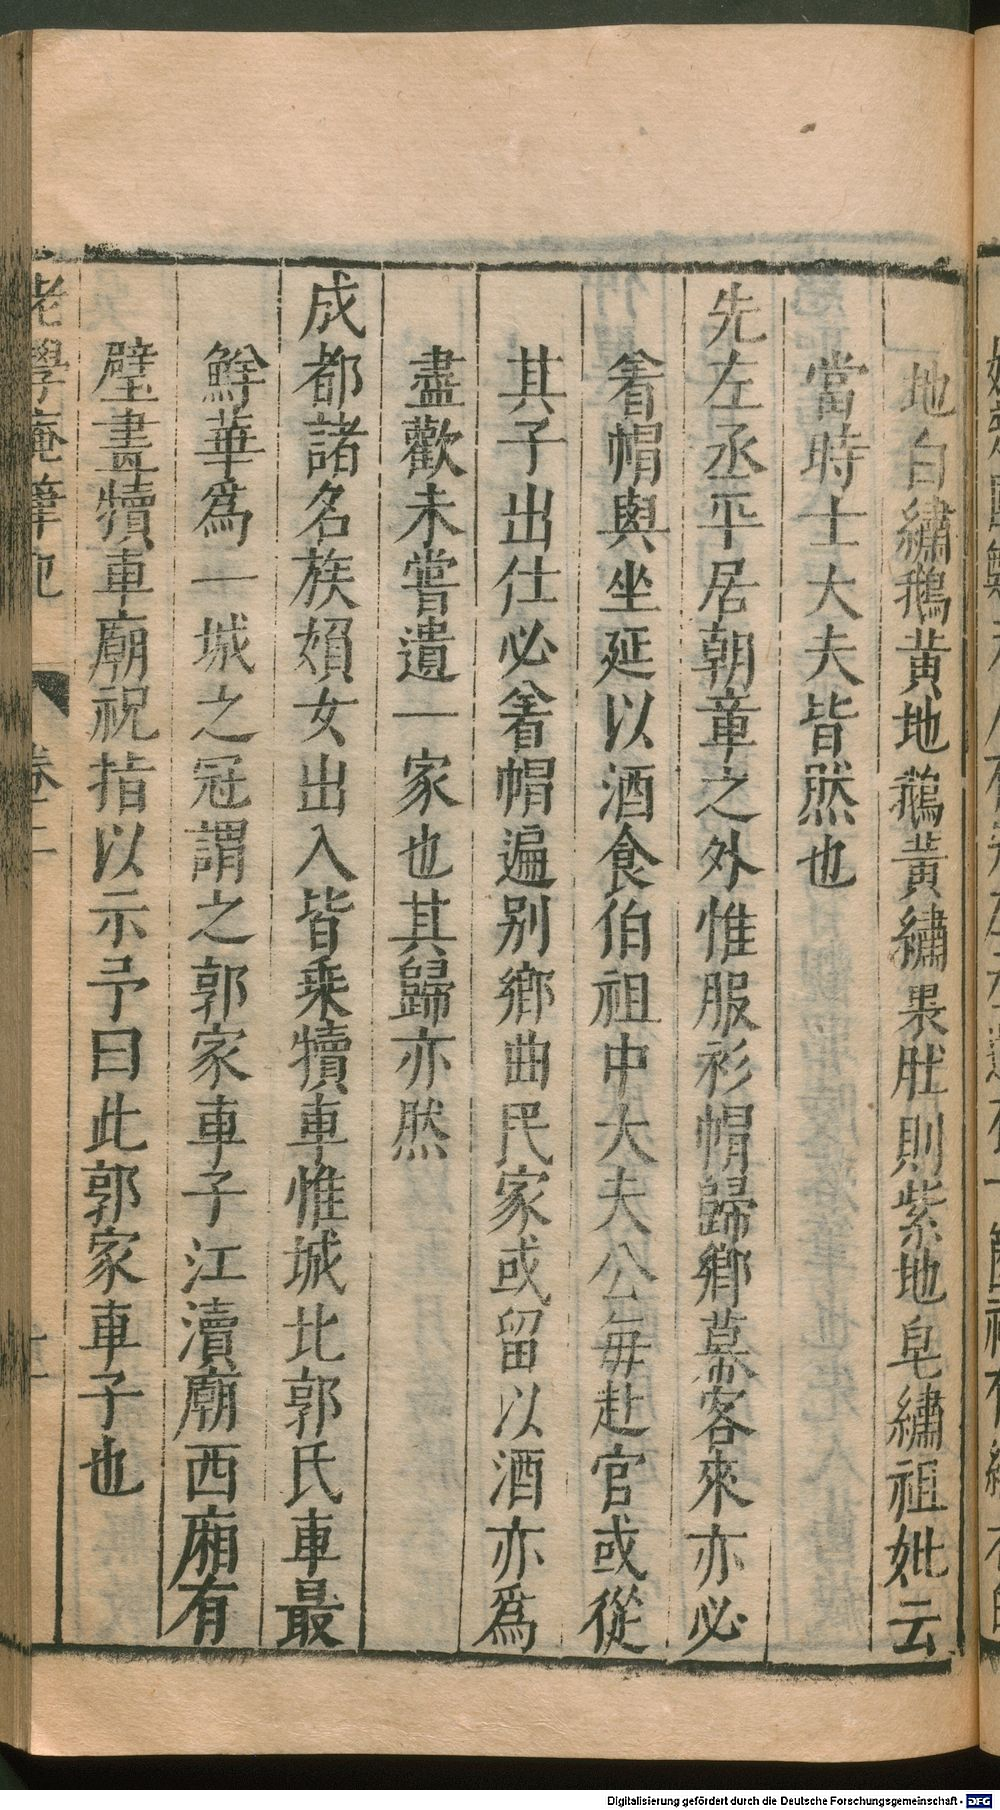 地白繡鵝黃地鵝黃繡裹肚則紫地皂繡祖妣云
當時士大夫皆然也
先左丞平居朝章之外惟服衫帽歸鄉幕客來亦必
着帽與坐延以酒食伯祖中大夫公每赴官或從
其子出仕必着帽遍別鄉曲民家或留以酒亦爲
盡歡未嘗遺一家也其歸亦然
成都諸名族婦女出入皆乘犢車惟城北郭氏車最
鮮華爲一城之冠謂之郭家車子江瀆廟西廂有
壁畫犢車廟祝指以示予曰此郭家車子也
老學庵筆記 卷二
Digitalisierung gefördert durch die Deutsche Forschungsgemeinschaft - DFG